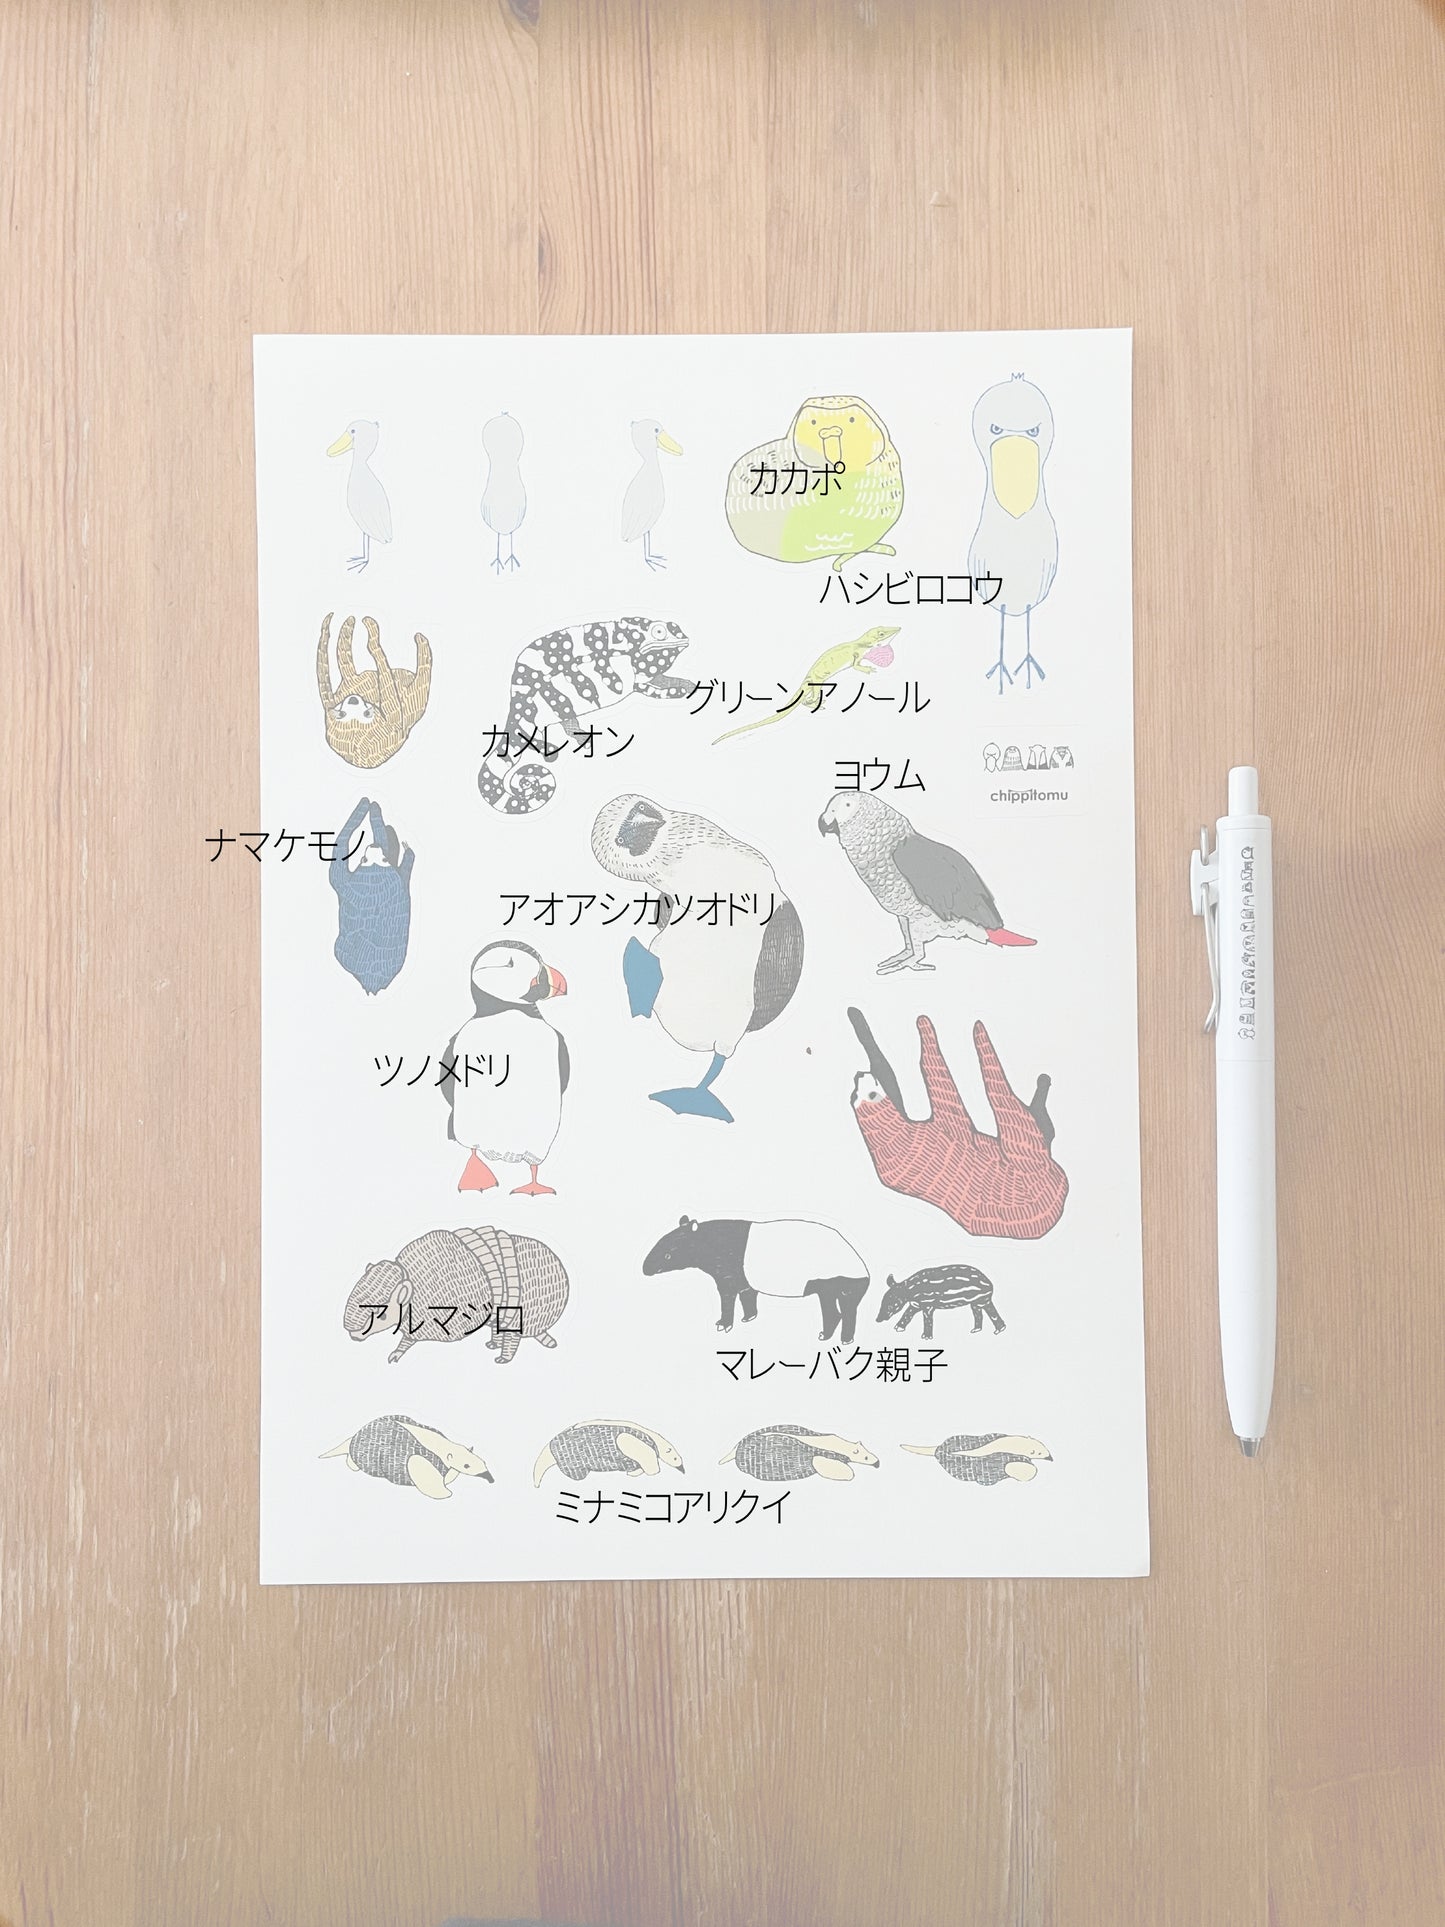 カカポ
ハシビロコウ
グリーンアノール
カメレオン
ヨウム
chippitomu
ナマケモノ
アオアシカツオドリ
ツノメドリ
アルマジロ
マレーバク親子
ミナミコアリクイ